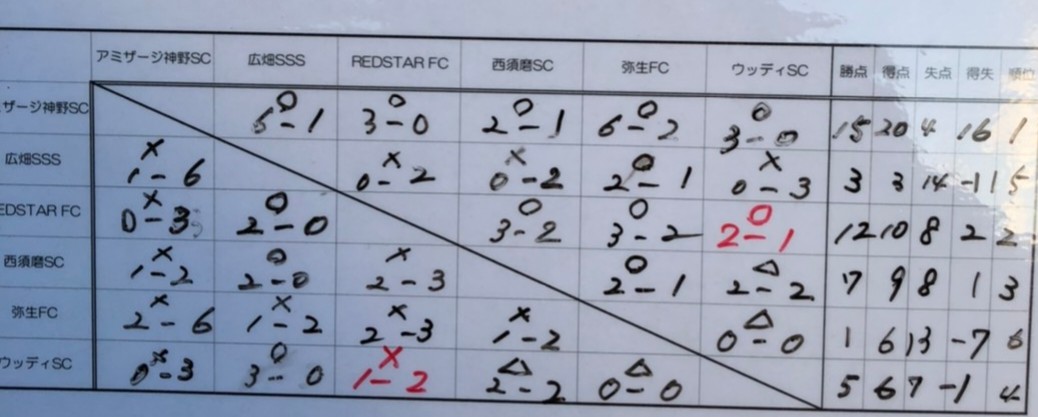 アミザージ神野SC 広畑SSS REDSTAR FC 西須磨SC 弥生FC ウッディSC 勝点 得点 失点 得失 順位
ザージ神野SC ○ 6-1 ○ 3-0 ○ 2-1 ○ 6-2 ○ 3-0 15 20 4 16 1
広畑SSS × 1-6 × 0-2 × 0-2 ○ 2-1 × 0-3 3 3 14 -11 5
EDSTAR FC × 0-3 ○ 2-0 ○ 3-2 ○ 3-2 ○ 2-1 12 10 8 2 2
西須磨SC × 1-2 ○ 2-0 × 2-3 ○ 2-1 △ 2-2 7 9 8 1 3
弥生FC × 2-6 × 1-2 × 2-3 × 1-2 △ 0-0 1 6 13 -7 6
ウッディSC × 0-3 ○ 3-0 × 1-2 △ 2-2 △ 0-0 5 6 7 -1 4